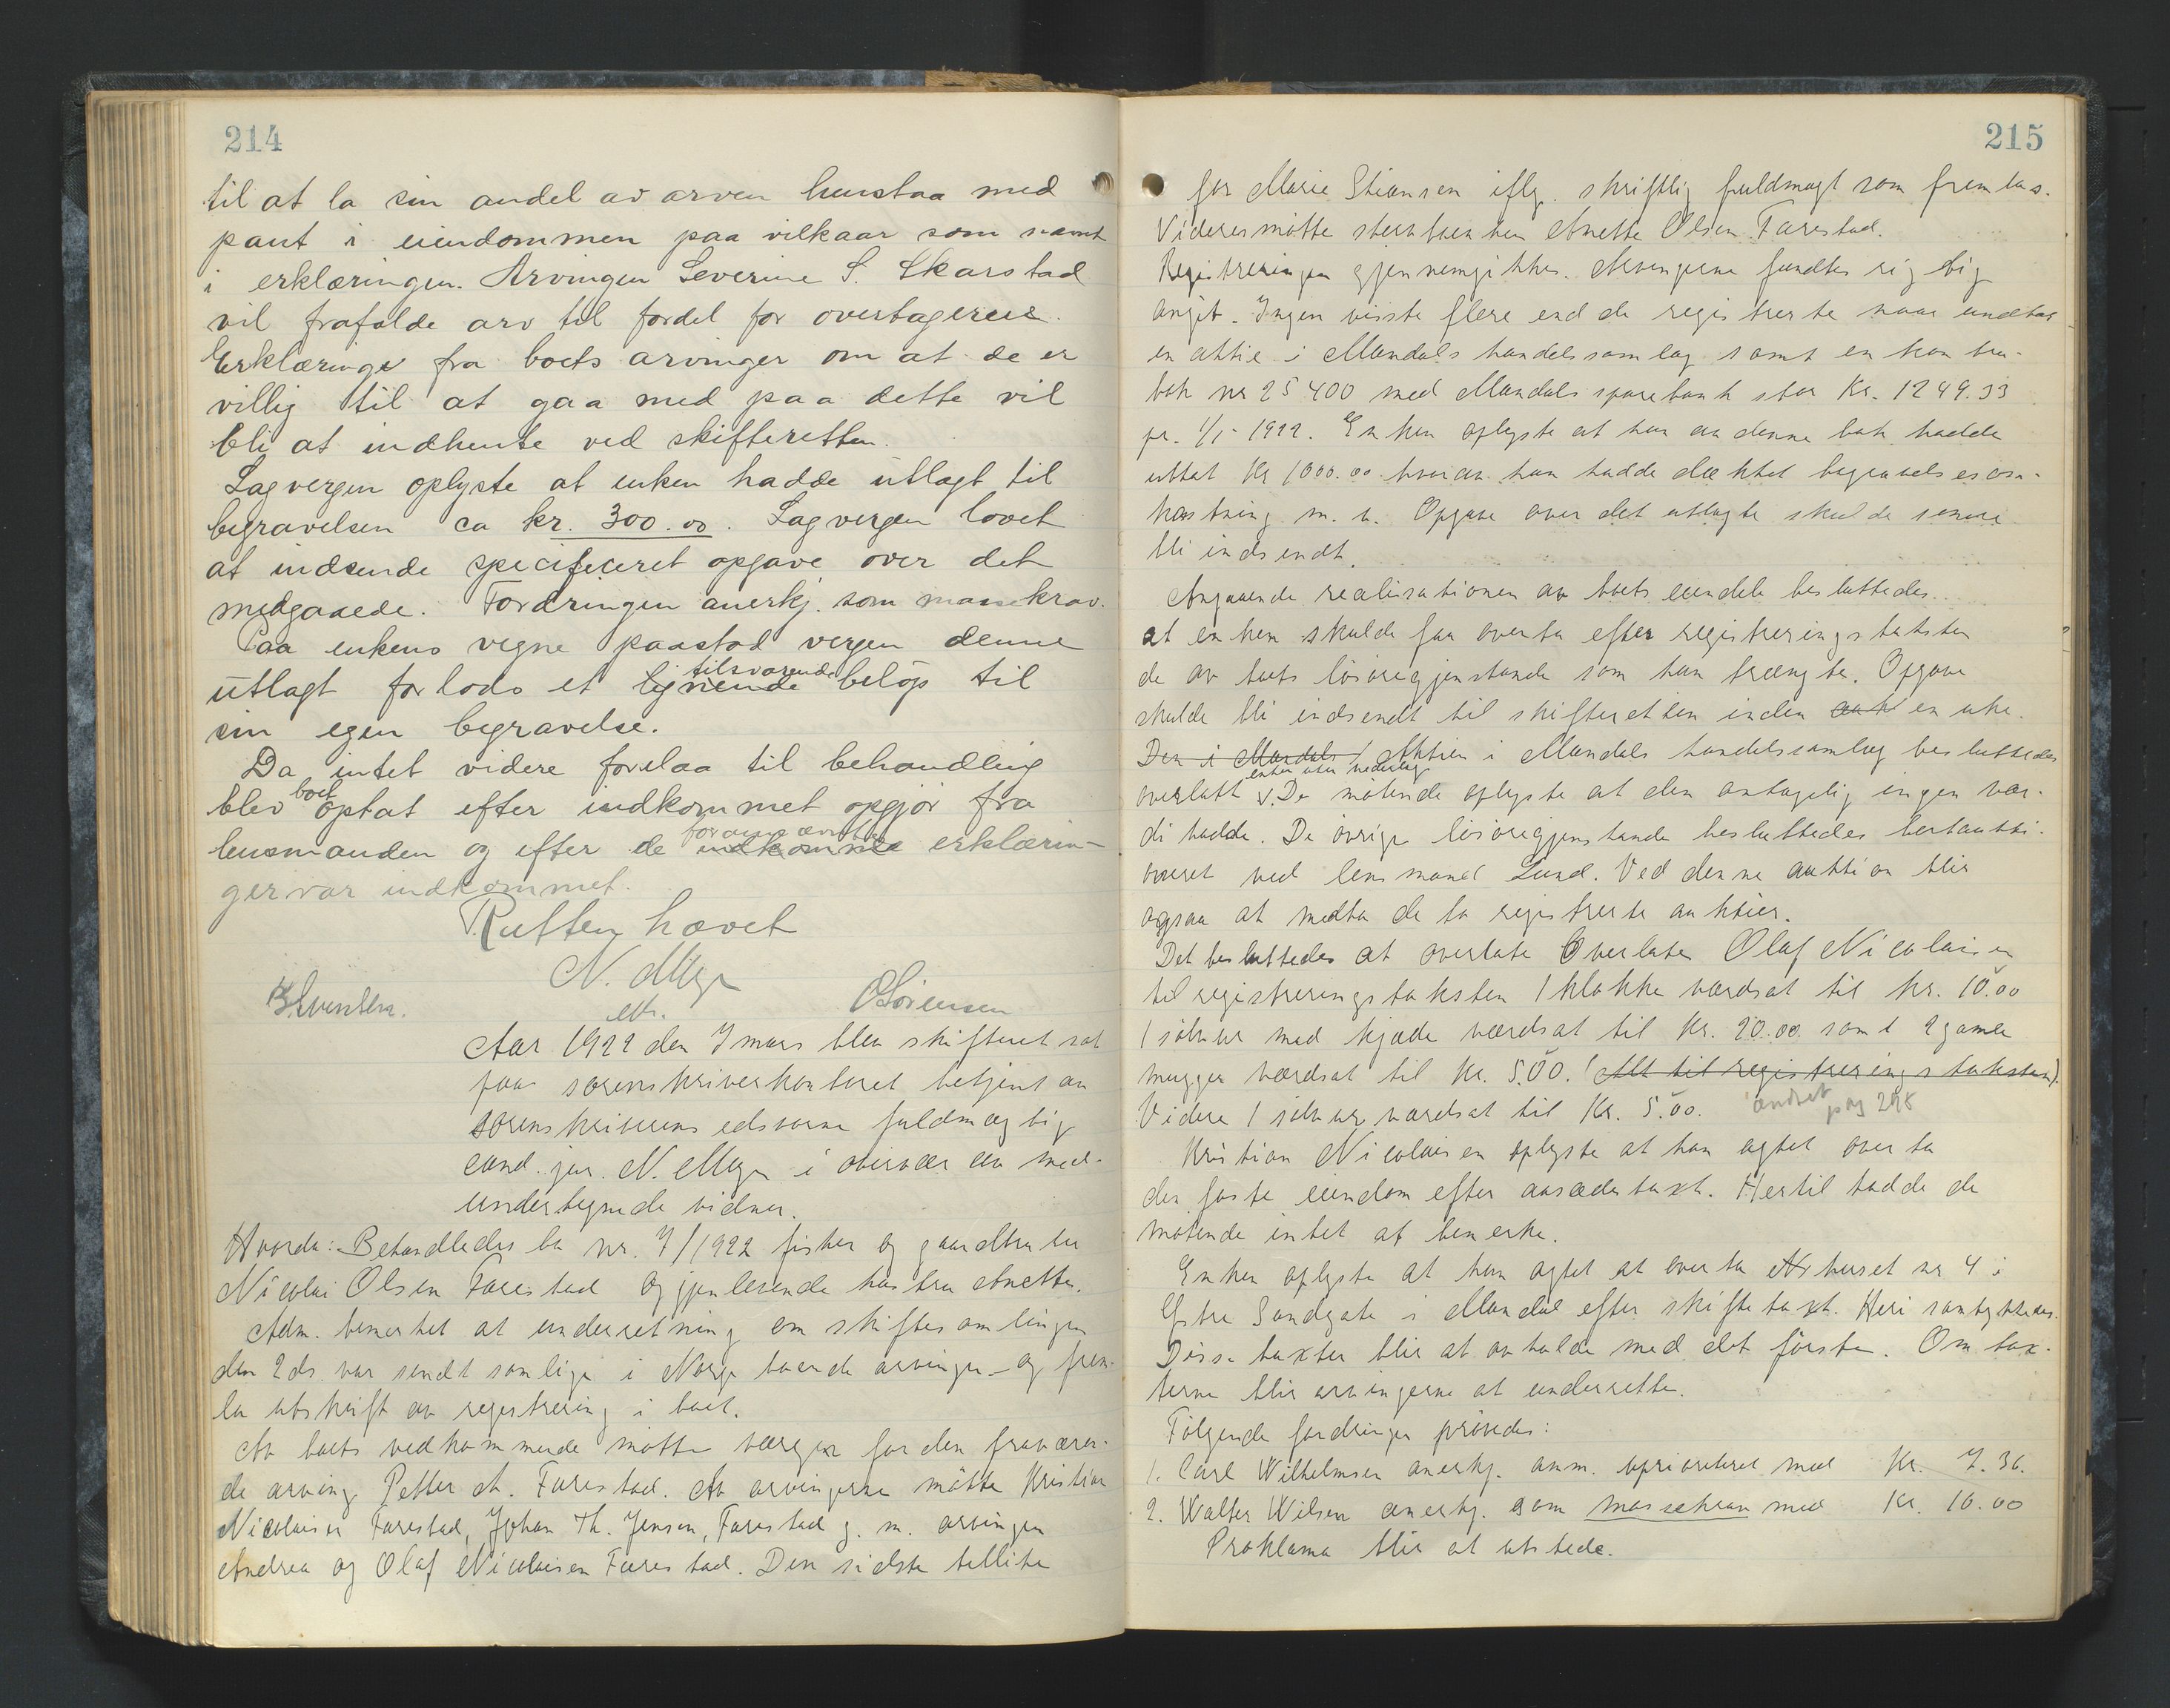 214
til at la sin andel av arven henstaa med
pant i eiendommen paa vilkaar som nævnt
i erklæringen. Arvingen Severine S. Skarstad
vil frafalde arv til fordel for overtagerne.
Erklæringe fra boets arvinger om at de er
villig til at gaa med paa dette vil
bli at indhente ved skifteretten.
Lagvergen oplyste at enken hadde utlagt til
begravelsen ca kr. 300.00. Lagvergen lovet
at indsende specificeret opgave over det
medgaaede. Fordringen anerkj. som massekrav.
Paa enkens vegne paastod vergen denne
tilsvarende
utlagt forlods et lignende beløp til
sin egen begravelse.
Da intet videre forelaa til behandling
blev boet optat efter indkommet opgjør fra
forannævnte
lensmanden og efter de indkomne erklærin-
ger var indkommet.
Retten hævet
N. Meyer
eth.
OSørensen
Aar 1922 den 7 mars blev skifteret sat
paa sorenskriverkontoret betjent av
sorenskriverens edsvorne fuldmægtig
cand. jur. N. Meyer i overvær av med-
undertegnede vidner.
Hvorda: Behandledes bo nr. 7/1922 fisker og gaardbruker
Nicolai Olsen Farestad og gjenlevende hustru Anette.
Adm. bemerket at underretning om skiftesamlingen
den 2 ds. var sendt samlige i Norge boende arvinger – og frem-
la utskrift av registrering i boet.
Av boets vedkommende møtte værgen for den fraværen-
de arving Petter A. Farestad. Av arvingerne møtte Kristian
Nicolaisen Farestad, Johan Th. Jensen, Farestad g. m. arvingen
Andrea og Olaf Nicolaisen Farestad. Den sidste tillike
215
for Marie Stiansen iflg. skriftlig fuldmagt som fremlas.
Videre møtte stervboenken Anette Olsen Farestad.
Registreringen gjennemgikkes. Arvingerne fandtes rigtig
angit. Ingen visste flere end de registrerte naar undtas
en aktie i Mandals handelssamlag samt en kontra-
bok nr 25400 med Mandals sparebank stor Kr. 1249.33
pr. 1/1- 1922. Enken oplyste at hun av denne bok hadde
uttat Kr 1000.00 hvorav hun hadde dækket begravelsesom-
kostning m. v. Opgave over det utlagte skulde senere
bli indsendt.
Angaaende realisationen av boets eiendele besluttedes
at enken skulde faa overta efter registreringstaksten
de av boets løsøregjenstande som hun trængte. Opgave
skulde bli indsendt til skifteretten inden en uke.
Den i Mandals Aktien i Mandals handelssamlag besluttedes
enken uten vederlag
overlatt v. De møtende oplyste at den antagelig ingen vær-
di hadde. De øvrige løsøregjenstande besluttedes bortaukti-
oneret ved lensmand Lund. Ved denne auktion blir
ogsaa at medta de to registrerte auktier.
Det besluttedes at overlate Overlates Olaf Nicolaisen
til registreringstaksten 1 klokke værdsat til kr. 10.00
1 sølvur med kjæde værdsat til Kr. 20.00 samt 2 gamle
mugger værdsat til Kr. 5.00. (Alt til registreringstaksten).
Videre 1 sølvur værdsat til Kr. 5.00. ændret pag 298
Kristian Nicolaisen oplyste at han agtet overta
den faste eiendom efter aasædestaxt. Hertil hadde de
møtende intet at bemerke.
Enken oplyste at hun agtet at overta huset nr 4 i
Østre Sandgate i Mandal efter skiftetaxt. Heri samtykkedes.
Disse taxter blir at avholde med det første. Om tax-
terne blir arvingerne at underrette.
Følgende fordringer prøvedes:
1. Carl Wilhelmsen anerkj. anm. uprioriteret med Kr. 7.36.
2. Walter Wilsen anerkj. som massekrav med Kr. 16.00
Proklama blir at utstede.